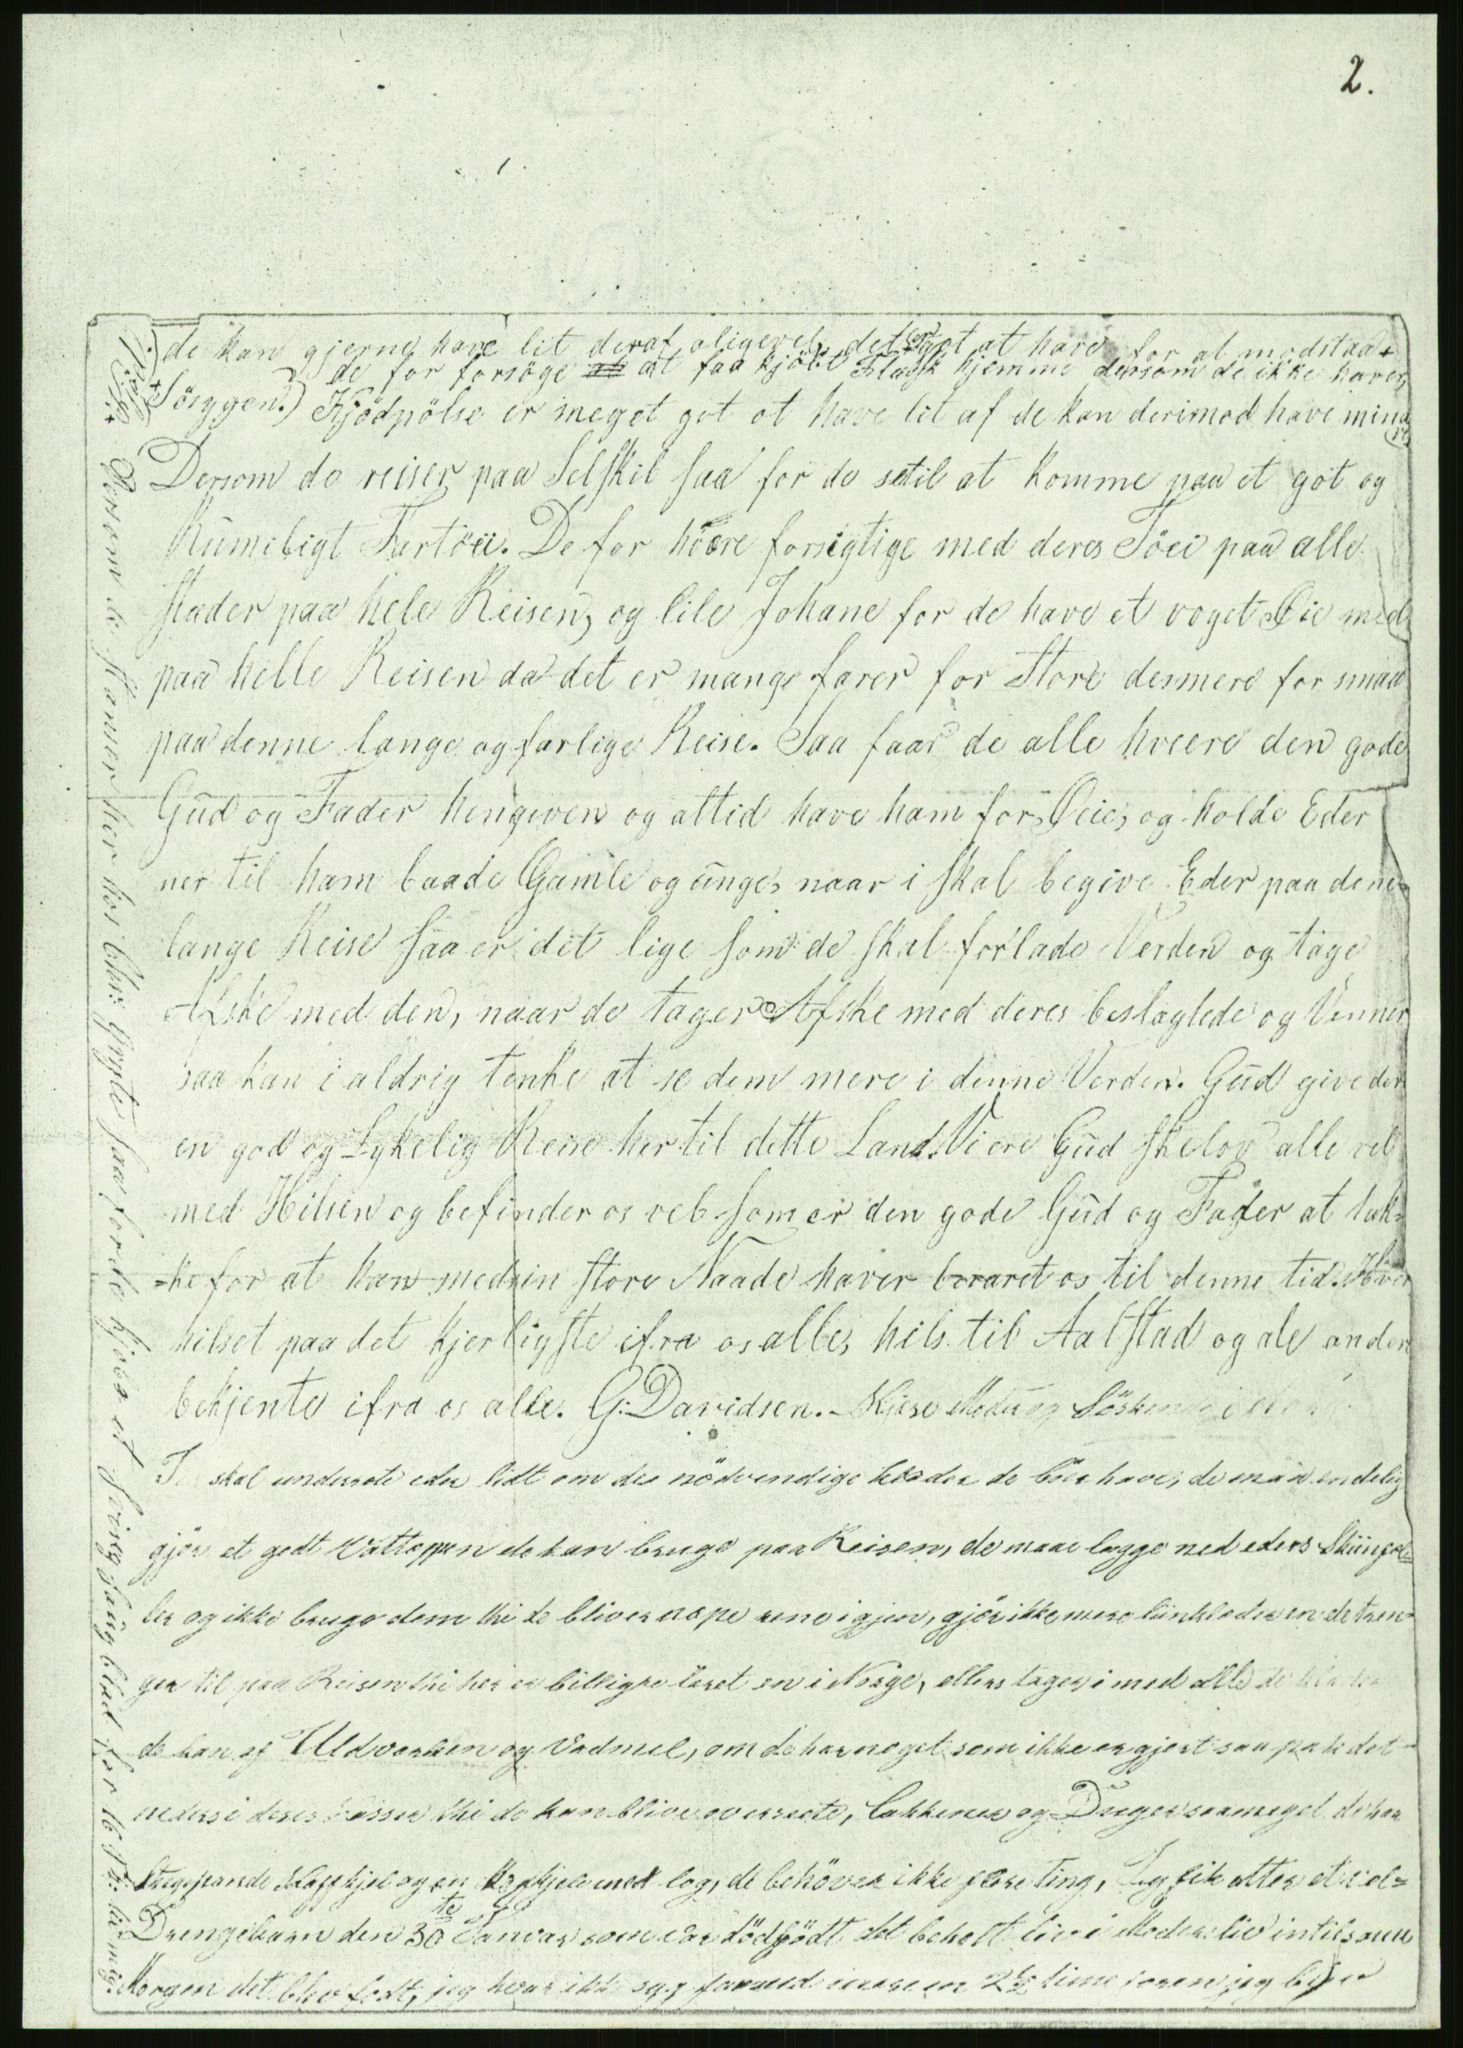 2.
de kan gjerne have lit deraf aligevel, det er got at have for at modstaa
de for forsøge at faa kjøbt Flæsk hjemme dersom de ikke haver,
Søsygen.) Kjödpölse er meget got at have lit af de kan derimod have mind
re
Dersom de reiser paa Selskil saa for de setil at komme paa et got og
Rümeligt Fartöei. De for hvere forsigtige med deres Töei paa alle
stæder paa hele Reisen, og lile Johane for de have et voget Øie med
paa helle Reisen da det er mange farer for Store desmere for smaa
paa denne lange og farlige Reise. Saa faar de alle hvere den gode
Gud og Fader hengiven og altid have ham for Øeie, og holde Eder
ner til ham baade Gamle og ünge, naar i skal begive Eder paa dene
lange Reise saa er det lige som de skal forlade Verden og tage
Afske med den, naar de tager Afske med deres beslaglede og Venner
saa kan i aldrig tenke at se dem mere i denne Verden. Gud give der
en god og Lykelig Reise her til dette Land. Vi ere Gud skelov alle vel
med Hilsen og befinder os vel som er den gode Gud og Fader at tak=
=ke for at han med sin store Naade haver bevaret os til denne tid. Hver
hilset paa det kjerligste ifra os alle, hils til Aalstad og ale andre
bekjente ifra os alle. G: Davidsen. Kjere Moder og Söskende
I skal underrete eder lidt om des nödvendige klæder de bör have, de maa endelig
gjör et godt Vattoppen de kan bruge paa Reisen, de maae legge ned eders Skiinfel=
ler og ikke bruge dem thi de bliver nepe rene igjen, gjör ikke mere liinklæder en de tren=
ger til paa Reisen thi her er billigre læret en i Norge, ellers tager i med alle de klæder
de kan af Uldvorken og Vadmel, om de har noget som ikke er gjort saa pak det
neder i deres kasser thi de kan blive overreete, Lakkener og Düger saameget de har
Stegepande Kaffekjel og en Kogkjele med log, de behöver ikke flere ting, Jeg fik atter et vel=
Drengebarn den 30te Januar som var dödfödt, det beholt liv i Moders liv intil samme
Morgen det blev födt, jeg hvar ikke syg mere en 2½ time foren jeg blev
Dersom de kommer her hos Chr: Grytte saa for de kjöbe et Forsey Saugblad for 16 Sk: til mig.